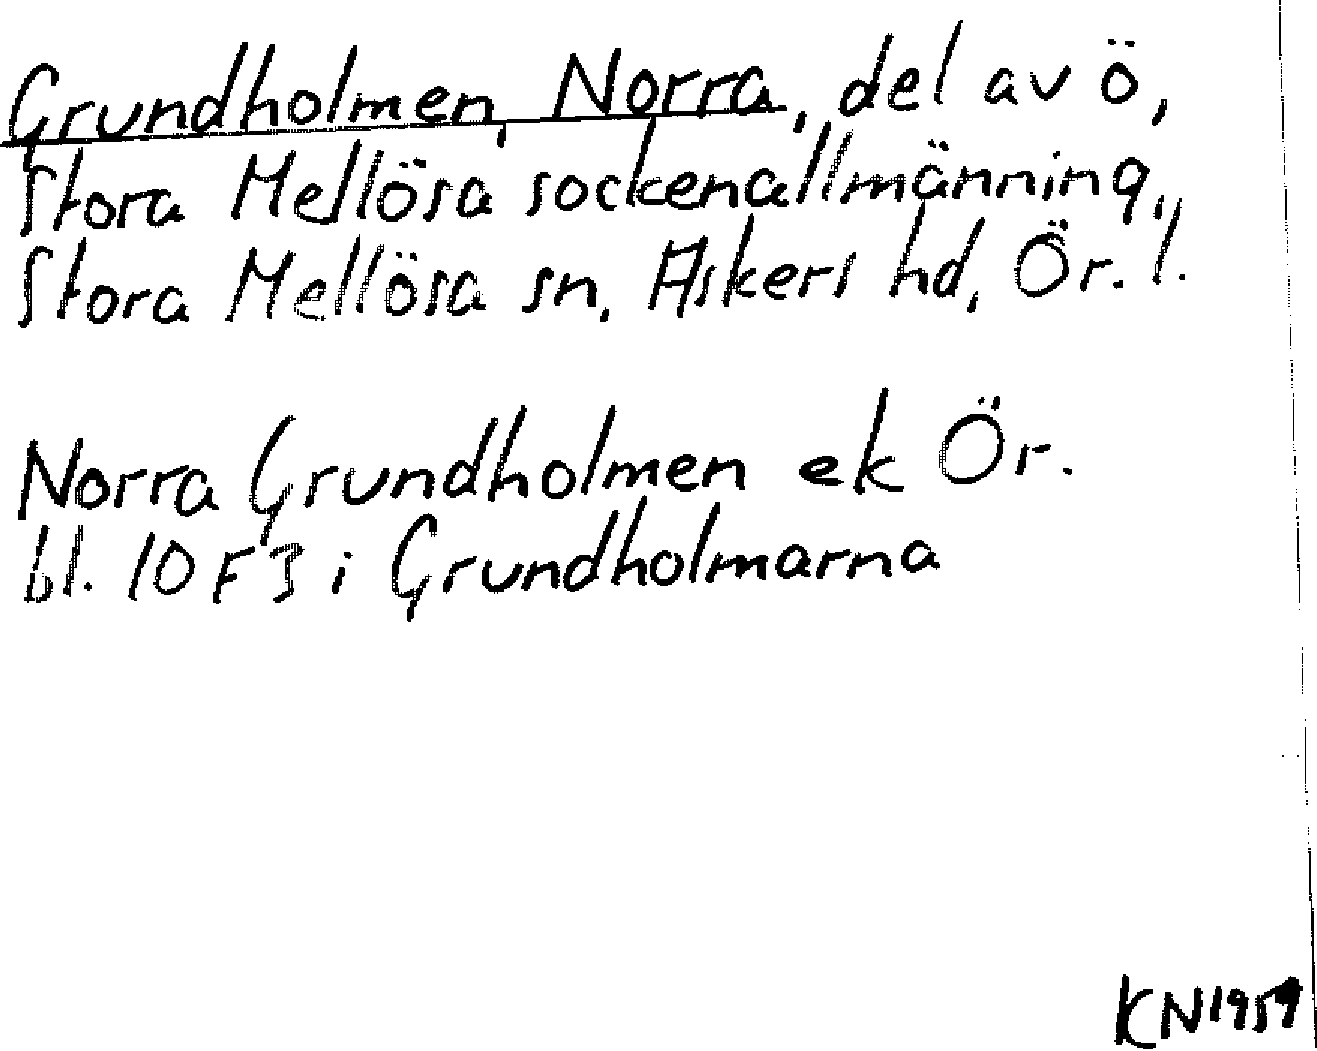 Grundholmen, Norra, del av ö,
Stora Mellösa sockenallmänning,
Stora Mellösa sn, Askers hd, Ör. l.
Norra Grundholmen ek Ör.
bl. 10 F 3 i Grundholmarna
KN 1959